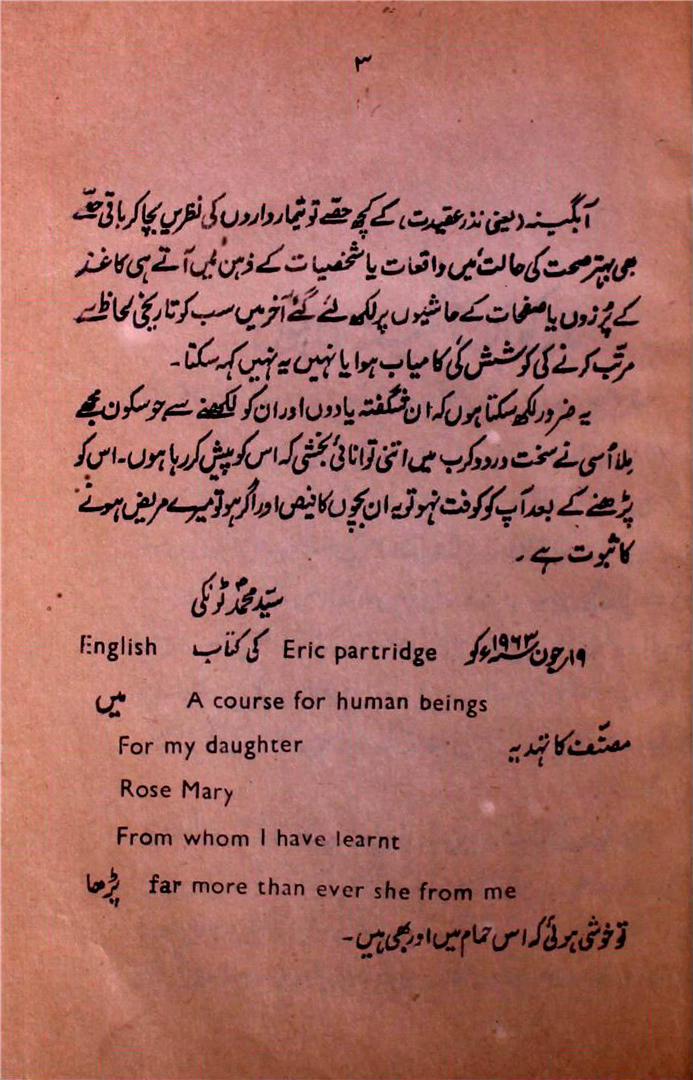 ۳
آبگینہ (یعنی نذر عقیدت) کے کچھ حصّے تو تیمار داروں کی نظریں بچا کر باقی حصّے
بھی بہتر صحت کی حالت میں واقعات یا شخصیات کے ذہن میں آتے ہی کاغذ
کے پُرزوں یا صفحات کے حاشیوں پر لکھ لئے گئے آخر میں سب کو تاریخی لحاظ سے
مرتّب کرنے کی کوشش کی کامیاب ہوا یا نہیں یہ نہیں کہہ سکتا۔
یہ ضرور لکھ سکتا ہوں کہ ان شگفتہ یادوں اور ان کو لکھنے سے جو سکون مجھے
ملا اُسی نے سخت درد و کرب میں اتنی توانائی بخشی کہ اس کو پیش کر رہا ہوں۔ اس کو
پڑھنے کے بعد آپ کو کوفت نہو تو یہ ان بچوں کا فیض اور اگر ہو تو میرے مریض ہونے
کا ثبوت ہے۔
سیّد محمد ٹونکی
۱۹ر جون ۱۹۶۳ء کو Eric partridge کی کتاب English
A course for human beings میں
مصنّف کا تہدیہ For my daughter
Rose Mary
From whom I have learnt
far more than ever she from me پڑھا
تو خوشی ہوئی کہ اس حمام میں اور بھی ہیں۔